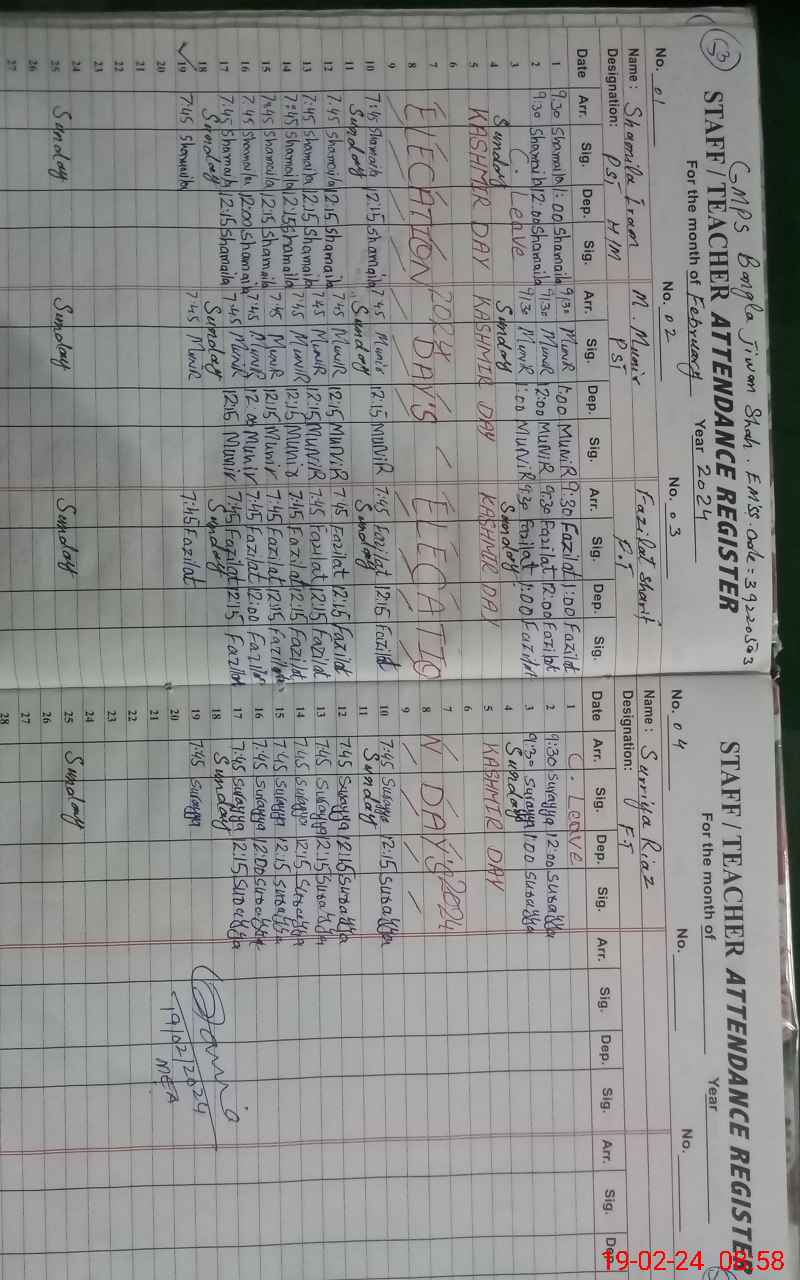 53
GMPS Bangla Jiwan Shah. EMIS. code = 39220503
STAFF / TEACHER ATTENDANCE REGISTER
For the month of February Year 2024
No. 01 No. 02 No. 03
Name: Shamila Iram M. Munir Fazilat Sharif
Designation: PST H/M PST P.T
Date Arr. Sig. Dep. Sig. Arr. Sig. Dep. Sig. Arr. Sig. Dep. Sig.
1 9:30 Shamaila 1:00 Shamaila 9:30 MuniR 1:00 MuNiR 9:30 Fazilat 1:00 Fazilat
2 9:30 Shamaila 12:00 Shamaila 9:30 MuniR 12:00 MuNiR 9:30 Fazilat 12:00 Fazilat
3 C. Leave 9:30 MuniR 1:00 MuNiR 9:30 Fazilat 1:00 Fazilat
4 Sunday Sunday Sunday
5 KASHMIR DAY KASHMIR DAY KASHMIR DAY
6
7 ELECATION 2024 DAY'S ELECATIO
8
9
10 7:45 Shamaila 12:15 Shamaila 7:45 Munir 12:15 MuNiR 7:45 Fazilat 12:15 Fazilat
11 Sunday Sunday Sunday
12 7:45 Shamaila 12:15 Shamaila 7:45 MuniR 12:15 MuNiR 7:45 Fazilat 12:15 Fazilat
13 7:45 Shamaila 12:15 Shamaila 7:45 MuniR 12:15 MuNiR 7:45 Fazilat 12:15 Fazilat
14 7:45 Shamaila 12:15 Shamaila 7:45 MuniR 12:15 Munir 7:45 Fazilat 12:15 Fazilat
15 7:45 Shamaila 12:15 Shamaila 7:45 MuniR 12:15 Munir 7:45 Fazilat 12:15 Fazilat
16 7:45 Shamaila 12:00 Shamaila 7:45 MuniR 12:00 Munir 7:45 Fazilat 12:00 Fazilat
17 7:45 Shamaila 12:15 Shamaila 7:45 MuniR 12:15 Munir 7:45 Fazilat 12:15 Fazilat
18 Sunday Sunday Sunday
19 7:45 Shamaila 7:45 MuniR 7:45 Fazilat
20
21
22
23
24
25 Sunday Sunday Sunday
26
27
STAFF / TEACHER ATTENDANCE REGISTER
For the month of Year
No. 04 No. No.
Name: Surriya Riaz
Designation: P.T
Date Arr. Sig. Dep. Sig. Arr. Sig. Dep. Sig. Arr. Sig. Dep
1 C. Leave
2 9:30 Surayya 12:00 Surayya
3 9:30 Surayya 1:00 Surayya
4 Sunday
5 KASHMIR DAY
6
7
8 N DAY'S 2024
9
10 7:45 Surayya 12:15 Surayya
11 Sunday
12 7:45 Surayya 12:15 Surayya
13 7:45 Surayya 12:15 Surayya
14 7:45 Surayya 12:15 Surayya
15 7:45 Surayya 12:15 Surayya
16 7:45 Surayya 12:00 Surayya
17 7:45 Surayya 12:15 Surayya
18 Sunday
19 7:45 Surayya
20
21
22
23
24
25 Sunday
26
27
28
19/02/2024
MEA
19-02-24 08:58